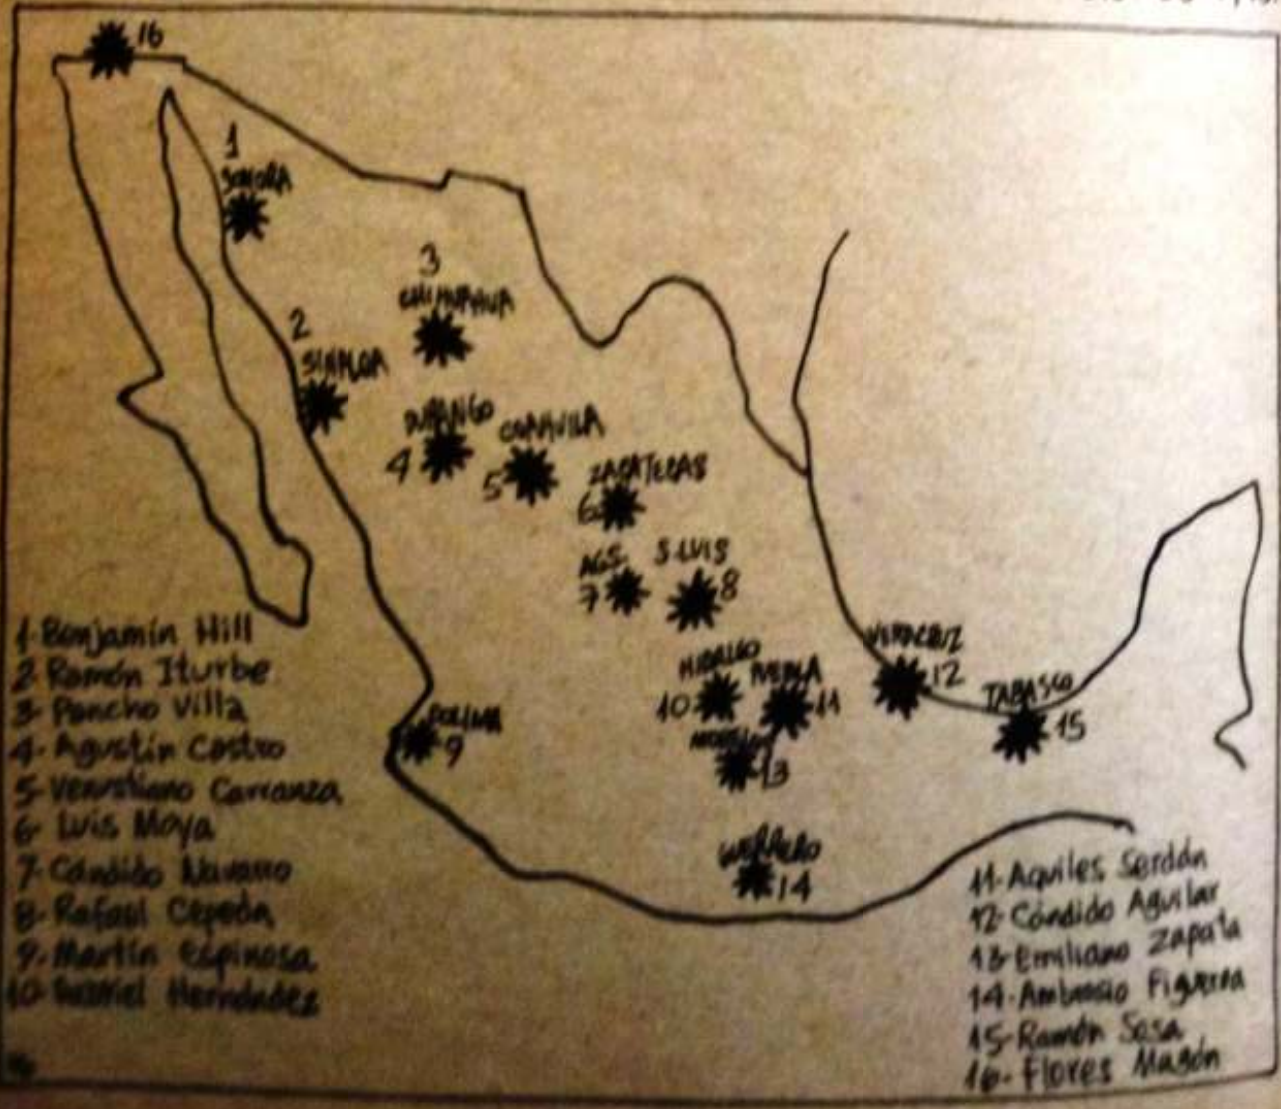 16
1
SONORA
3
CHIHUAHUA
2
SINALOA
DURANGO
4
COAHUILA
5
ZACATECAS
6
AGS.
7
S. LUIS
8
HIDALGO
10
PUEBLA
11
VERACRUZ
12
TABASCO
15
COLIMA
9
MORELOS
13
GUERRERO
14
1-Benjamín Hill
2-Ramón Iturbe
3-Pancho Villa
4-Agustín Castro
5-Venustiano Carranza
6-Luis Moya
7-Cándido Navarro
8-Rafael Cepeda
9-Martín Espinosa
10-Gabriel Hernández
11-Aquiles Serdán
12-Cándido Aguilar
13-Emiliano Zapata
14-Ambrosio Figueroa
15-Ramón Sosa
16-Flores Magón